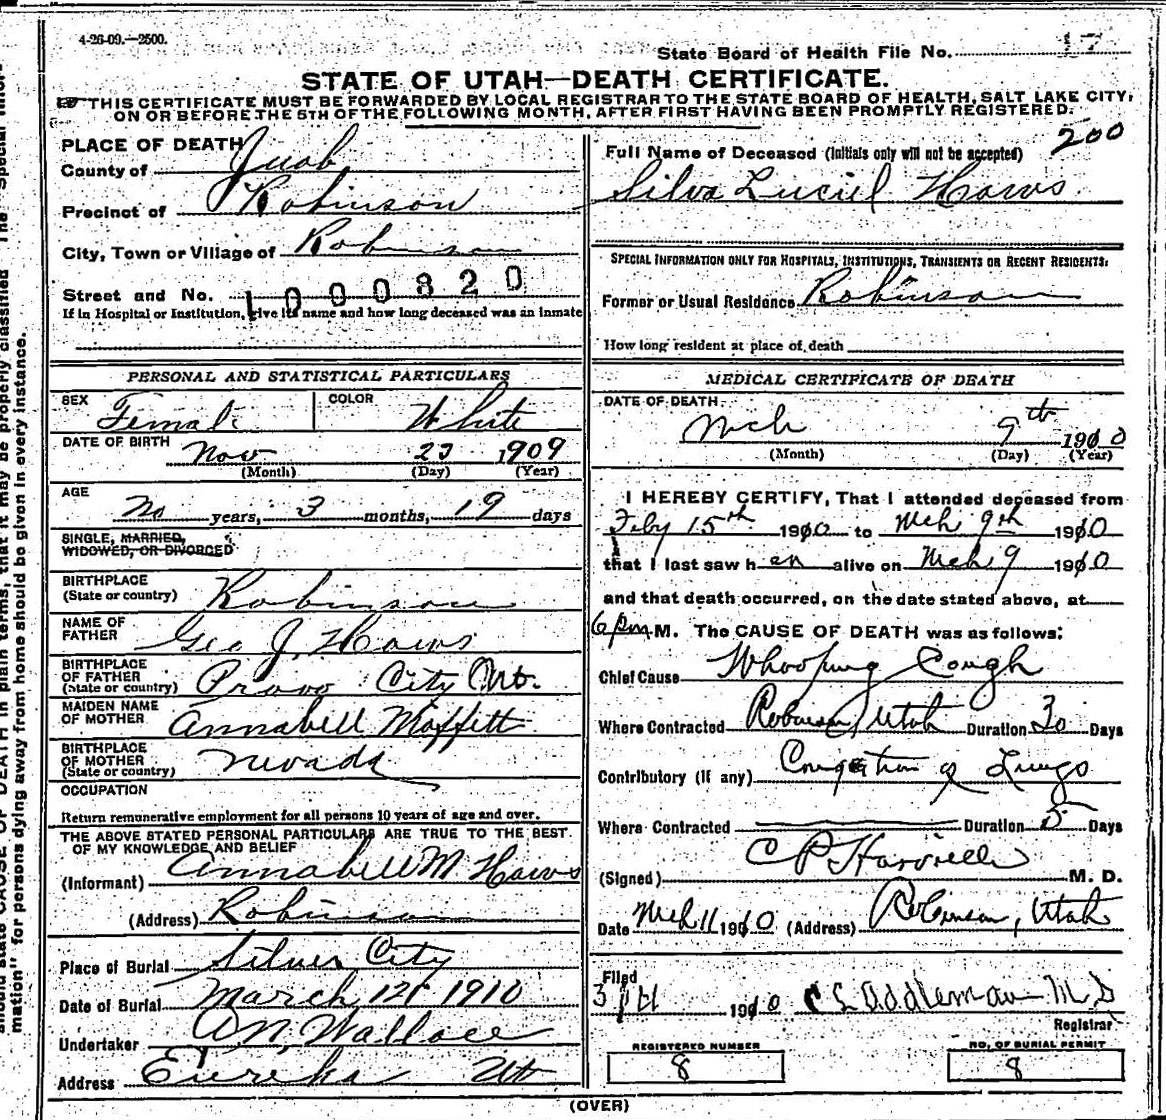 4-26-09.—2500.
State Board of Health File No. 17
STATE OF UTAH—DEATH CERTIFICATE.
THIS CERTIFICATE MUST BE FORWARDED BY LOCAL REGISTRAR TO THE STATE BOARD OF HEALTH, SALT LAKE CITY,
ON OR BEFORE THE 5TH OF THE FOLLOWING MONTH, AFTER FIRST HAVING BEEN PROMPTLY REGISTERED.
200
PLACE OF DEATH
County of Juab
Precinct of Robinson
City, Town or Village of Robinson
Street and No. 1000820
If in Hospital or Institution, give its name and how long deceased was an inmate
PERSONAL AND STATISTICAL PARTICULARS
SEX Female COLOR White
DATE OF BIRTH Nov 23 1909
(Month) (Day) (Year)
AGE No years, 3 months, 19 days
SINGLE, MARRIED,
WIDOWED, OR DIVORCED
BIRTHPLACE
(State or country) Robinson
NAME OF
FATHER Geo J. Haws
BIRTHPLACE
OF FATHER
(State or country) Provo City Ut.
MAIDEN NAME
OF MOTHER Annabell Moffett
BIRTHPLACE
OF MOTHER
(State or country) Nevada
OCCUPATION
Return remunerative employment for all persons 10 years of age and over.
THE ABOVE STATED PERSONAL PARTICULARS ARE TRUE TO THE BEST
OF MY KNOWLEDGE AND BELIEF
(Informant) Annabell M Haws
(Address) Robinson
Place of Burial Silver City
Date of Burial March 12t 1910
Undertaker A N. Wallace
Address Eureka Ut
Full Name of Deceased (Initials only will not be accepted)
Silva Luciel Haws
SPECIAL INFORMATION ONLY FOR HOSPITALS, INSTITUTIONS, TRANSIENTS OR RECENT RESIDENTS:
Former or Usual Residence Robinson
How long resident at place of death
MEDICAL CERTIFICATE OF DEATH
DATE OF DEATH
Mch 9th 1910
(Month) (Day) (Year)
I HEREBY CERTIFY, That I attended deceased from
Feby 15th 1910 to Mch 9th 1910
that I last saw her alive on Mch 9 1910
and that death occurred, on the date stated above, at
6 pm M. The CAUSE OF DEATH was as follows:
Chief Cause Whooping Cough
Where Contracted Robinson, Utah Duration 30 Days
Contributory (If any) Congestion of Lungs
Where Contracted Duration 5 Days
(Signed) C P M. D.
Date Mch 11 1910 (Address) Robinson, Utah
Filed
1910 C E Addleman M D
Registrar
REGISTERED NUMBER
8
NO. OF BURIAL PERMIT
8
(OVER)
should state CAUSE OF DEATH in plain terms, that it may be properly classified The "Special Infor-
mation" for persons dying away from home should be given in every instance.